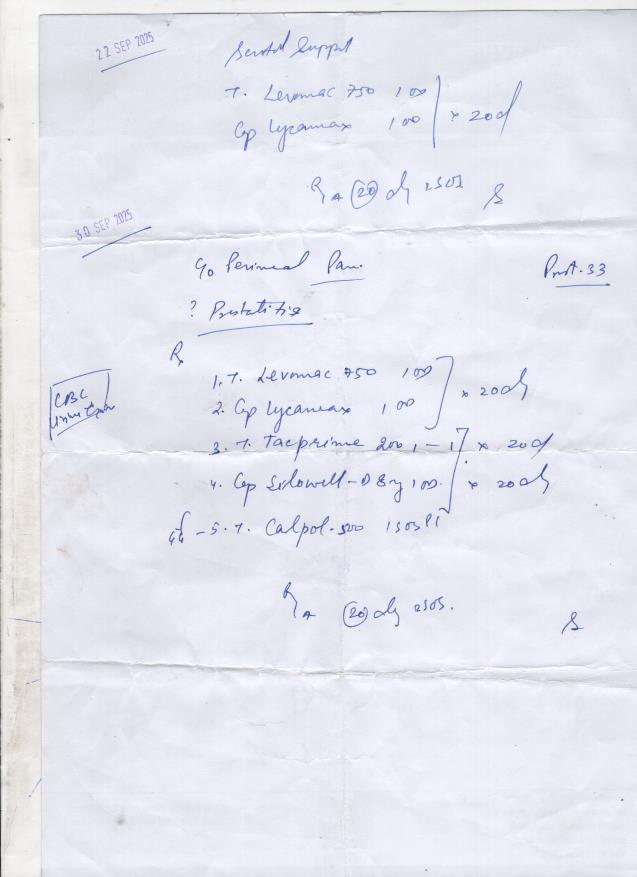 22 SEP 2025
Scrotal Support
T. Levomac 750 100
Cap Lycamax 100 x 20d
R/A (20) dy
30 SEP 2025
c/o Perineal Pain.
? Prostatitis
Rx
CBC
1. T. Levomac 750 100
2. Cap Lycamax 100 x 20dy
3. T. Tacprime 200 1-1 x 20d
4. Cap Silowell-D 8mg 100. x 20dy
5. T. Calpol-500 1 SOS
R/A (20) dy